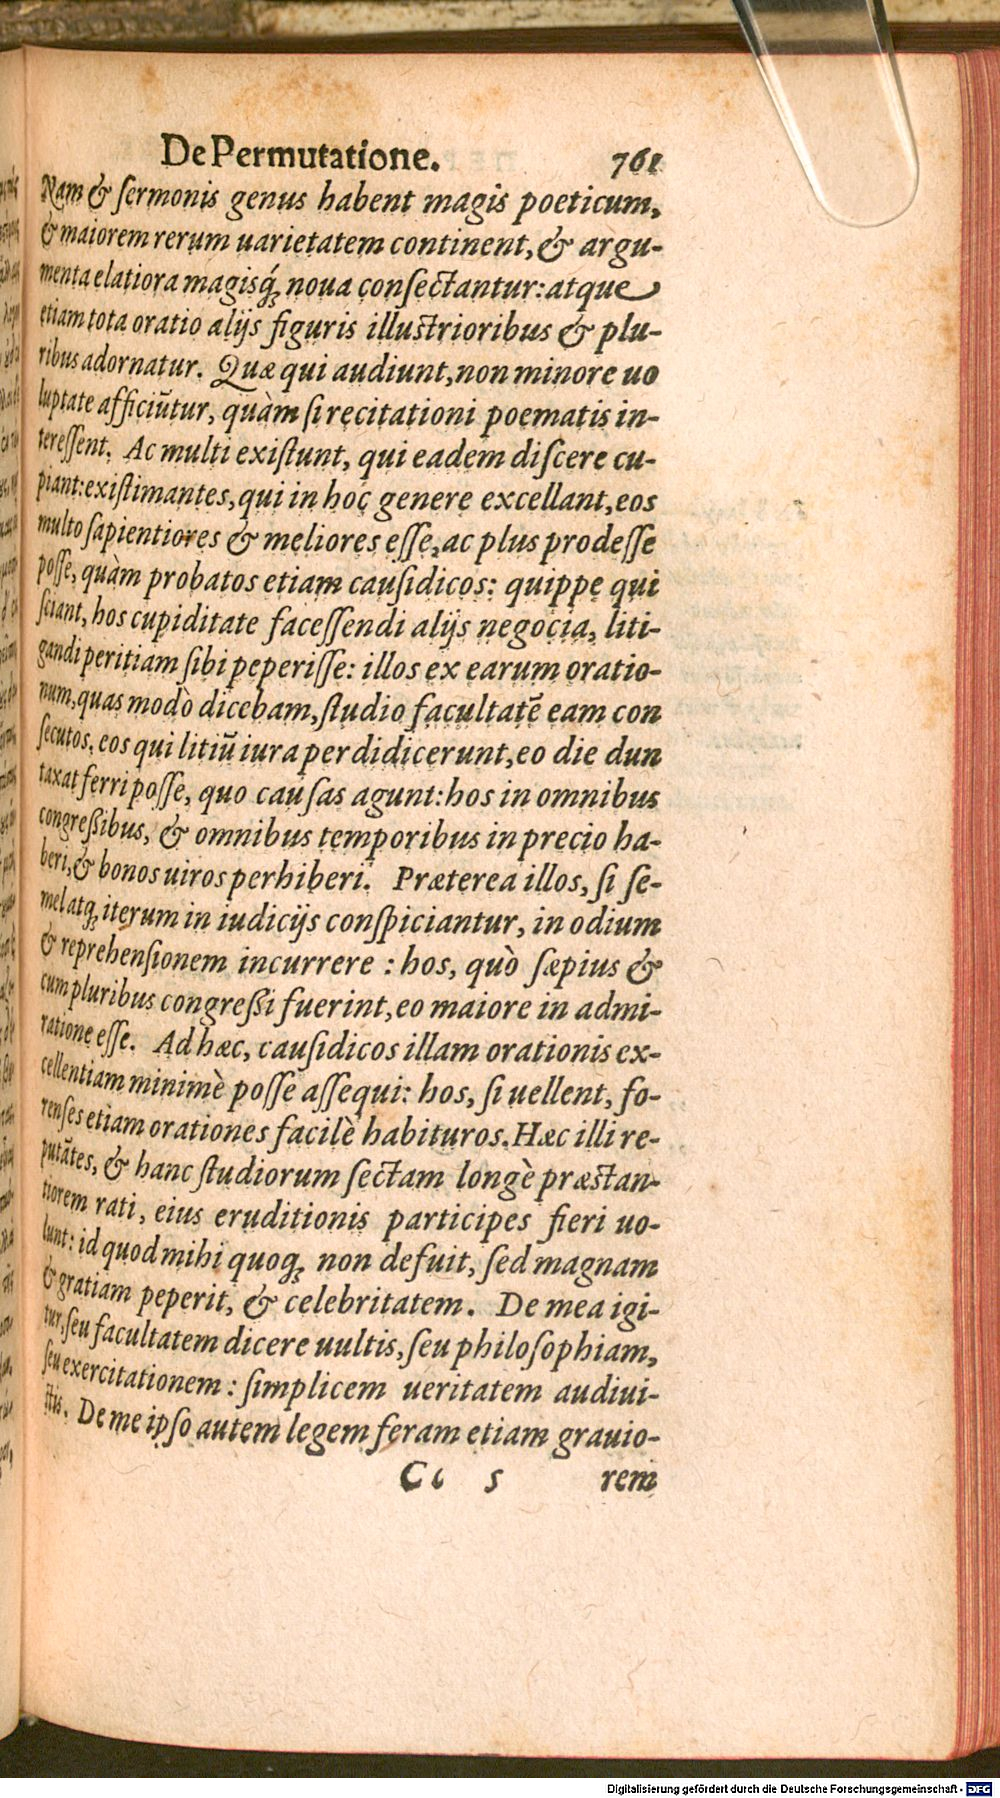 De Permutatione. 761
Nam & ſermonis genus habent magis poeticum,
& maiorem rerum uarietatem continent, & argu-
menta elatiora magisq́ꝫ noua conſectantur: atque
etiam tota oratio alijs figuris illuſtrioribus & plu-
ribus adornatur. Quæ qui audiunt, non minore uo
luptate afficiūtur, quàm ſi recitationi poematis in-
tereſſent. Ac multi exiſtunt, qui eadem diſcere cu-
piant: exiſtimantes, qui in hoc genere excellant, eos
multo ſapientiores & meliores eſſe, ac plus prodeſſe
poſſe, quàm probatos etiam cauſidicos: quippe qui
ſciant, hos cupiditate faceſſendi alijs negocia, liti-
gandi peritiam ſibi peperiſſe: illos ex earum oratio-
num, quas modò dicebam, ſtudio facultatē eam con
ſecutos, eos qui litiū iura perdidicerunt, eo die dun
taxat ferri poſſe, quo cauſas agunt: hos in omnibus
congreſsibus, & omnibus temporibus in precio ha-
beri, & bonos uiros perhiberi. Præterea illos, ſi ſe-
mel atqꝫ iterum in iudicijs conſpiciantur, in odium
& reprehenſionem incurrere : hos, quò ſæpius &
cum pluribus congreſsi fuerint, eo maiore in admi-
ratione eſſe. Ad hæc, cauſidicos illam orationis ex-
cellentiam minimè poſſe aſſequi: hos, ſi uellent, fo-
renſes etiam orationes facilè habituros. Hæc illi re-
putātes, & hanc ſtudiorum ſectam longè præſtan-
tiorem rati, eius eruditionis participes fieri uo-
lunt: id quod mihi quoqꝫ non defuit, ſed magnam
& gratiam peperit, & celebritatem. De mea igi-
tur, ſeu facultatem dicere uultis, ſeu philoſophiam,
ſeu exercitationem : ſimplicem ueritatem audiui-
ſtis. De me ipſo autem legem feram etiam grauio-
Cc 5 rem
Digitalisierung gefördert durch die Deutsche Forschungsgemeinschaft - DFG